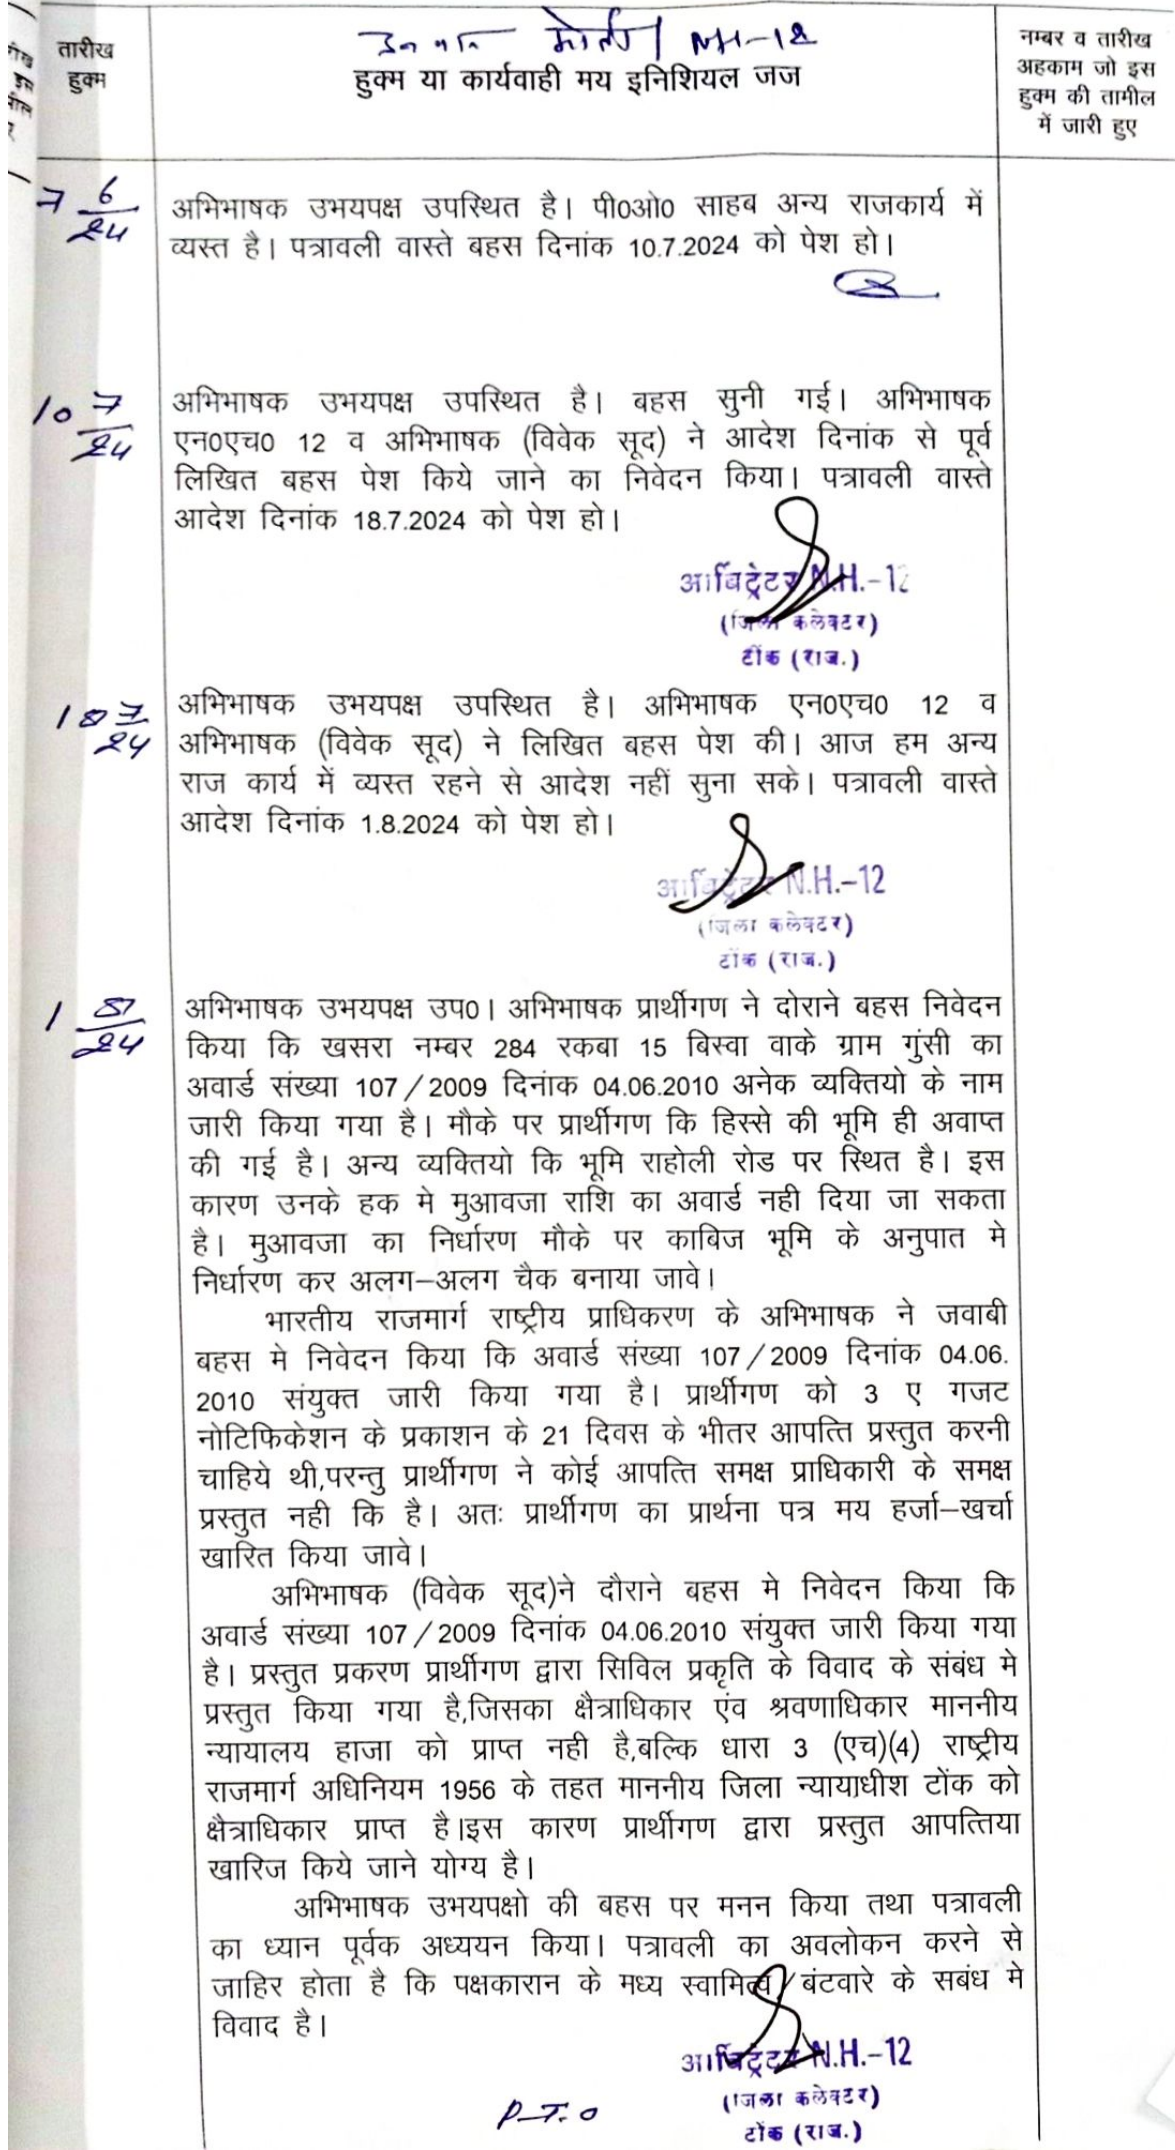 तारीख
हुक्म
NH-12
हुक्म या कार्यवाही मय इनिशियल जज
नम्बर व तारीख
अहकाम जो इस
हुक्म की तामील
में जारी हुए
7 6/24
अभिभाषक उभयपक्ष उपस्थित है। पी0ओ0 साहब अन्य राजकार्य में
व्यस्त है। पत्रावली वास्ते बहस दिनांक 10.7.2024 को पेश हो।
10 7/24
अभिभाषक उभयपक्ष उपस्थित है। बहस सुनी गई। अभिभाषक
एन0एच0 12 व अभिभाषक (विवेक सूद) ने आदेश दिनांक से पूर्व
लिखित बहस पेश किये जाने का निवेदन किया। पत्रावली वास्ते
आदेश दिनांक 18.7.2024 को पेश हो।
आर्बिट्रेटर N.H.-12
(जिला कलेक्टर)
टोंक (राज.)
18 7/24
अभिभाषक उभयपक्ष उपस्थित है। अभिभाषक एन0एच0 12 व
अभिभाषक (विवेक सूद) ने लिखित बहस पेश की। आज हम अन्य
राज कार्य में व्यस्त रहने से आदेश नहीं सुना सके। पत्रावली वास्ते
आदेश दिनांक 1.8.2024 को पेश हो।
आर्बिट्रेटर N.H.-12
(जिला कलेक्टर)
टोंक (राज.)
1 8/24
अभिभाषक उभयपक्ष उप0। अभिभाषक प्रार्थीगण ने दोराने बहस निवेदन
किया कि खसरा नम्बर 284 रकबा 15 बिस्वा वाके ग्राम गुंसी का
अवार्ड संख्या 107/2009 दिनांक 04.06.2010 अनेक व्यक्तियो के नाम
जारी किया गया है। मौके पर प्रार्थीगण कि हिस्से की भूमि ही अवाप्त
की गई है। अन्य व्यक्तियो कि भूमि राहोली रोड पर स्थित है। इस
कारण उनके हक मे मुआवजा राशि का अवार्ड नही दिया जा सकता
है। मुआवजा का निर्धारण मौके पर काबिज भूमि के अनुपात मे
निर्धारण कर अलग–अलग चैक बनाया जावे।
भारतीय राजमार्ग राष्ट्रीय प्राधिकरण के अभिभाषक ने जवाबी
बहस मे निवेदन किया कि अवार्ड संख्या 107/2009 दिनांक 04.06.
2010 संयुक्त जारी किया गया है। प्रार्थीगण को 3 ए गजट
नोटिफिकेशन के प्रकाशन के 21 दिवस के भीतर आपत्ति प्रस्तुत करनी
चाहिये थी,परन्तु प्रार्थीगण ने कोई आपत्ति समक्ष प्राधिकारी के समक्ष
प्रस्तुत नही कि है। अतः प्रार्थीगण का प्रार्थना पत्र मय हर्जा–खर्चा
खारित किया जावे।
अभिभाषक (विवेक सूद)ने दौराने बहस मे निवेदन किया कि
अवार्ड संख्या 107/2009 दिनांक 04.06.2010 संयुक्त जारी किया गया
है। प्रस्तुत प्रकरण प्रार्थीगण द्वारा सिविल प्रकृति के विवाद के संबंध मे
प्रस्तुत किया गया है,जिसका क्षैत्राधिकार एंव श्रवणाधिकार माननीय
न्यायालय हाजा को प्राप्त नही है,बल्कि धारा 3 (एच)(4) राष्ट्रीय
राजमार्ग अधिनियम 1956 के तहत माननीय जिला न्यायाधीश टोंक को
क्षैत्राधिकार प्राप्त है।इस कारण प्रार्थीगण द्वारा प्रस्तुत आपत्तिया
खारिज किये जाने योग्य है।
अभिभाषक उभयपक्षो की बहस पर मनन किया तथा पत्रावली
का ध्यान पूर्वक अध्ययन किया। पत्रावली का अवलोकन करने से
जाहिर होता है कि पक्षकारान के मध्य स्वामित्व/बंटवारे के सबंध मे
विवाद है।
आर्बिट्रेटर N.H.-12
(जिला कलेक्टर)
टोंक (राज.)
P.T.O